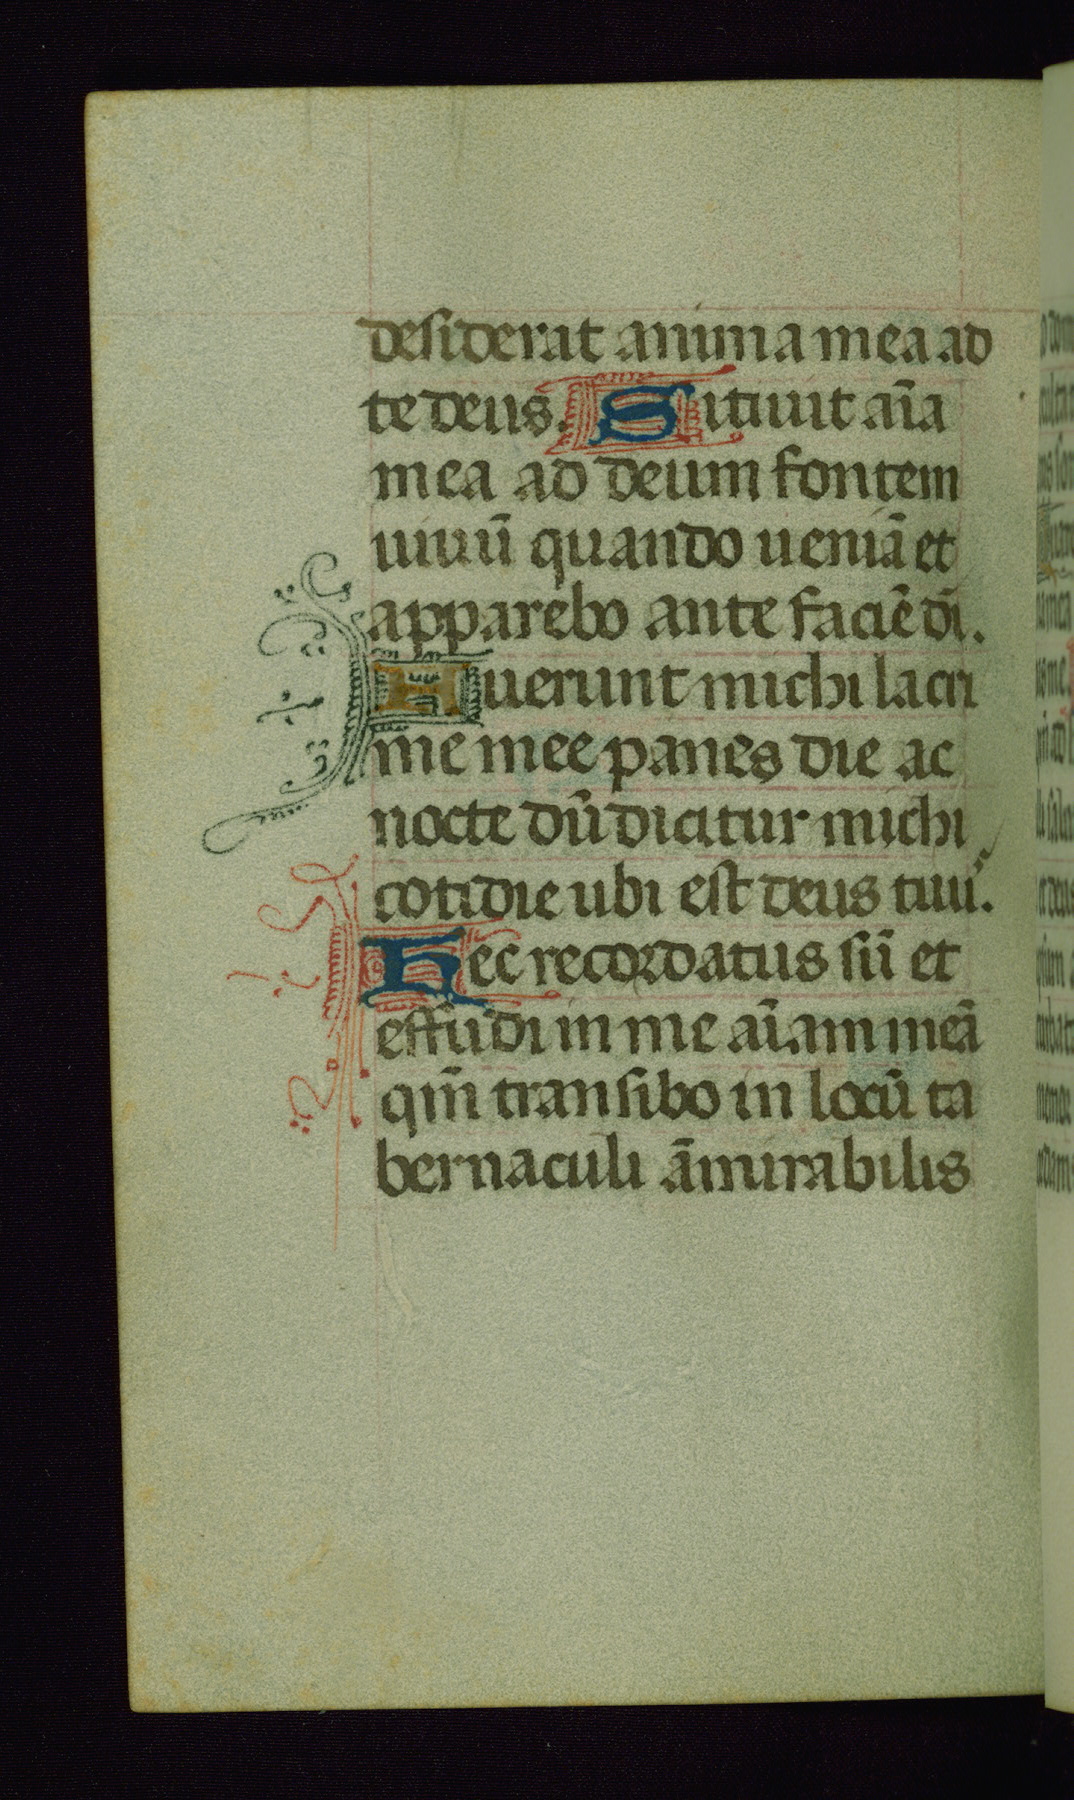 desiderat anima mea ad
te deus. Sitiuit aĩa
mea ad deum fontem
uiuũ quando ueniã et
apparebo ante faciẽ dĩ.
Fuerunt michi lacri
me mee panes die ac
nocte dũ dicitur michi
cotidie ubi est deus tuu᷒.
Hec recordatus sũ et
effudi in me aĩam meã
qm̃ transibo in locũ ta
bernaculi ãmirabilis